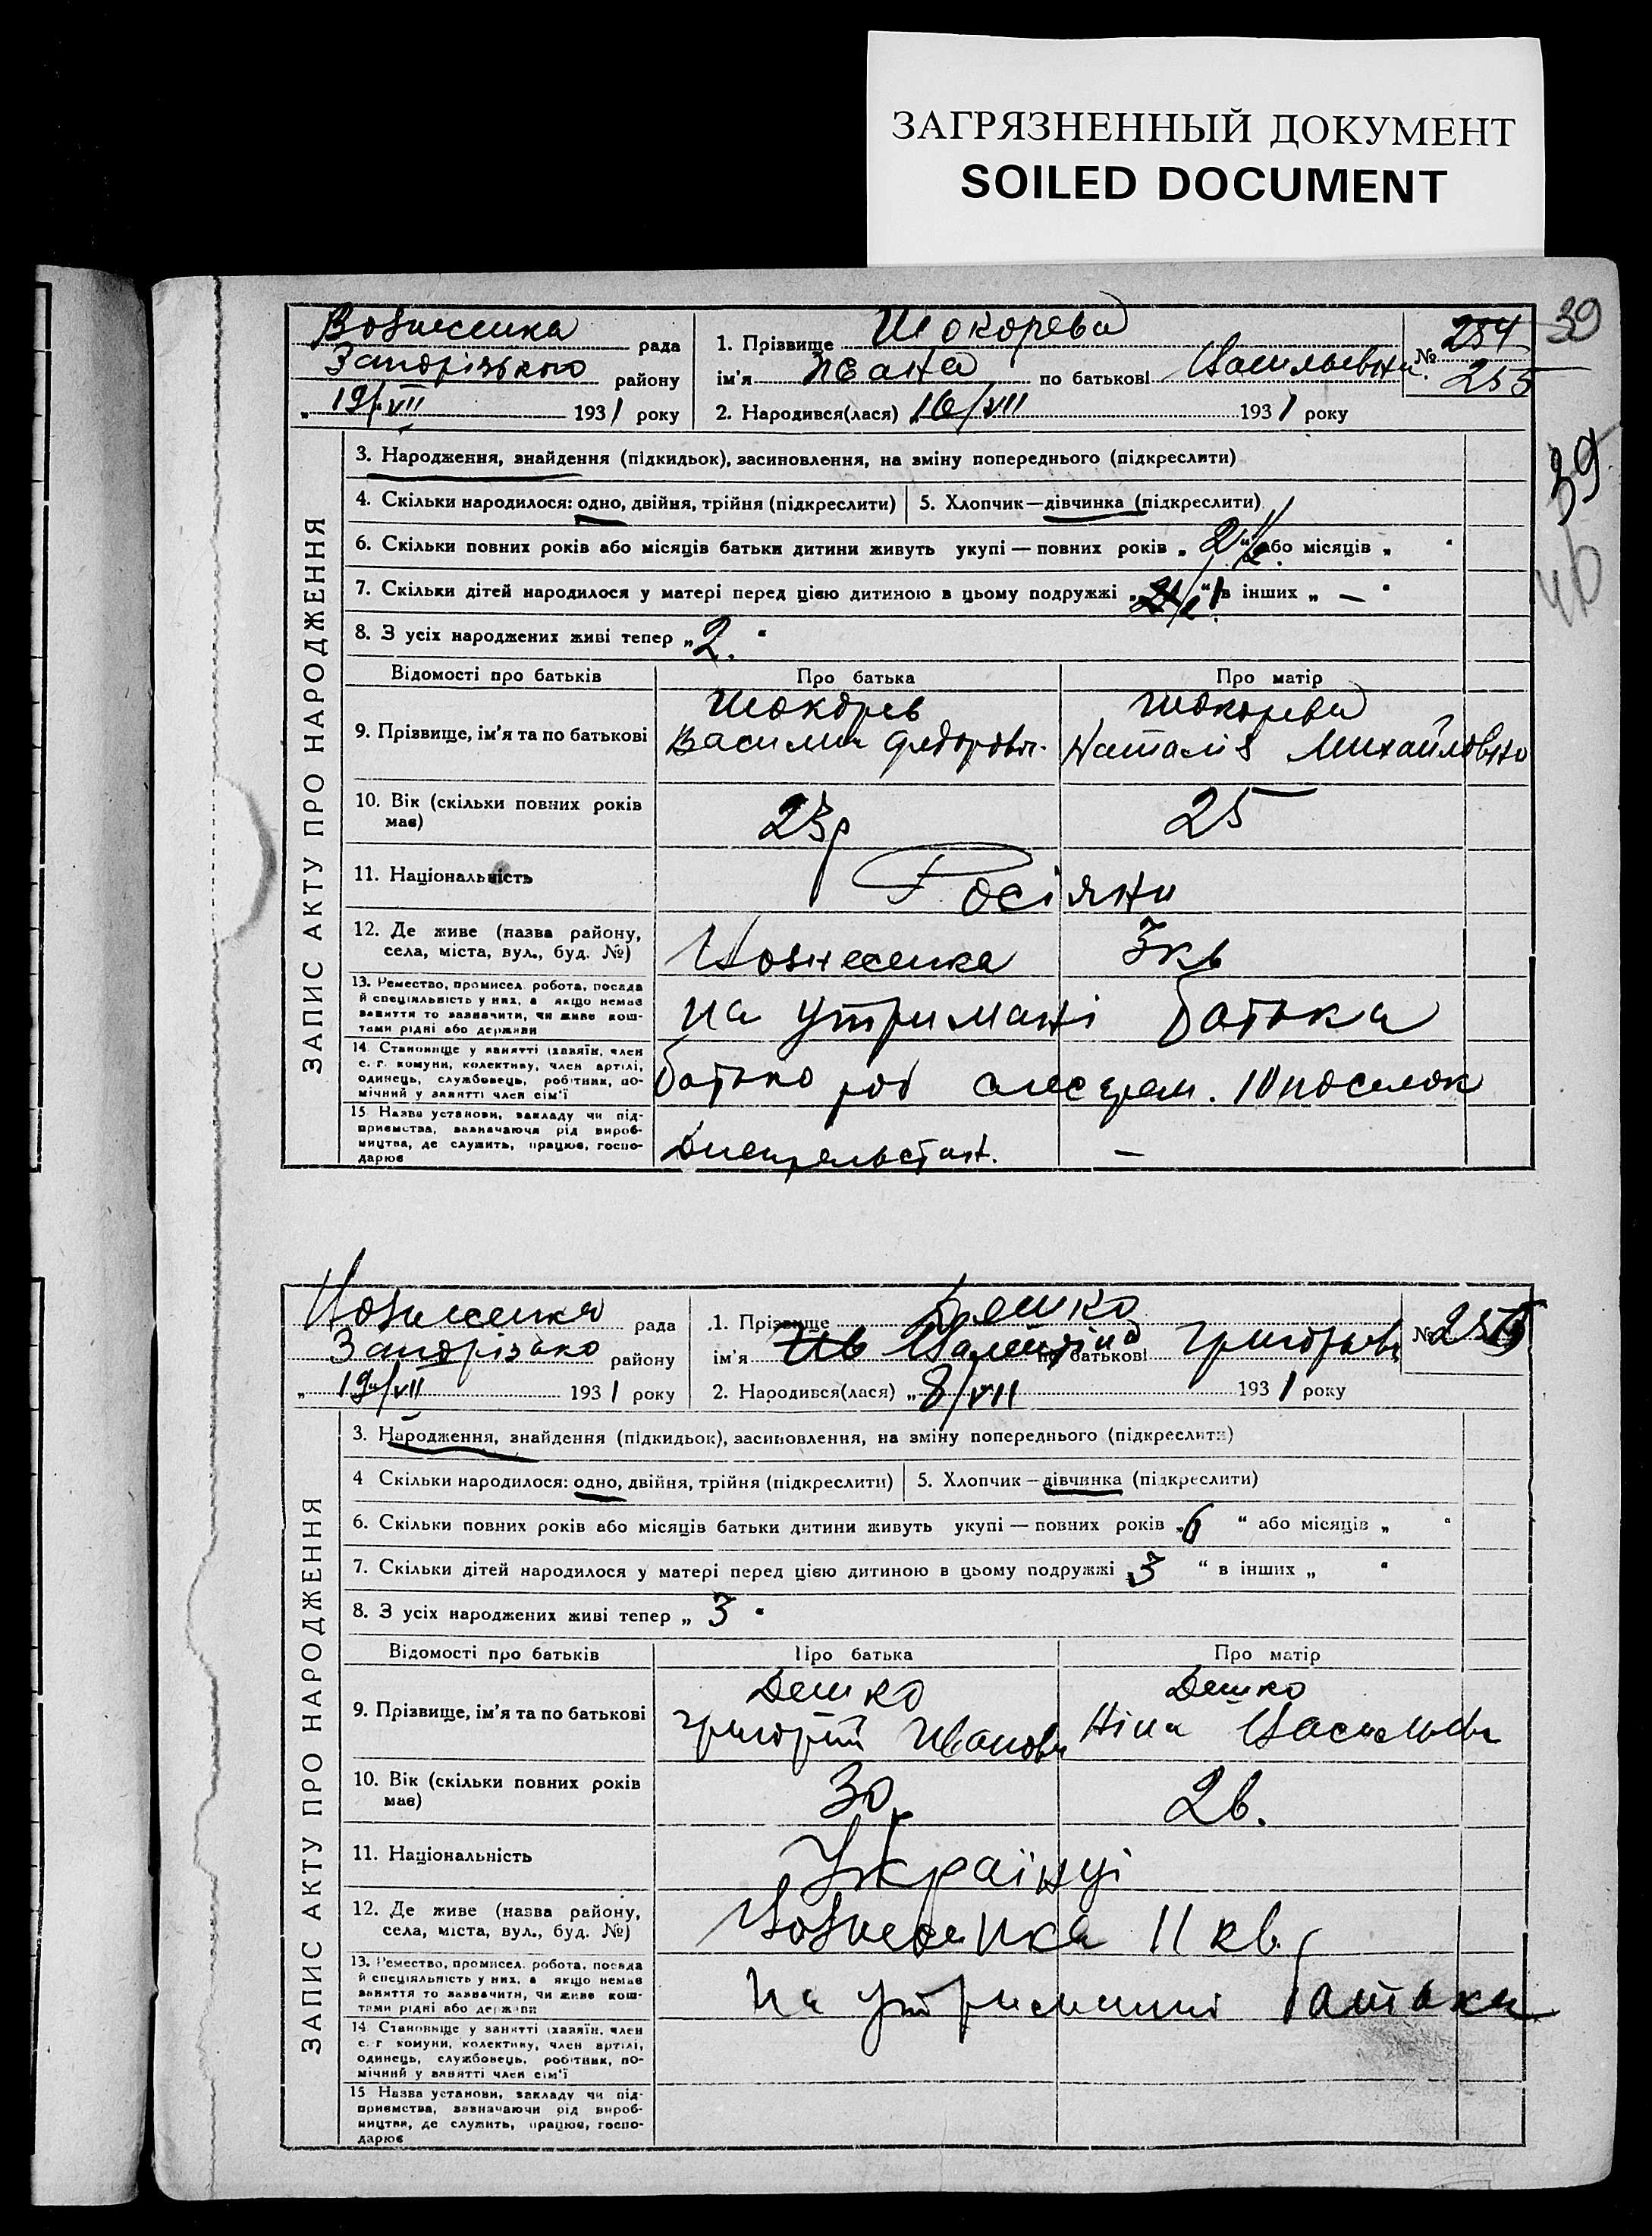 ЗАГРЯЗНЕННЫЙ ДОКУМЕНТ
SOILED DOCUMENT
39
39
46
ЗАПИС АКТУ ПРО НАРОДЖЕННЯ
Вознесенка рада
Запорізького району
„ 19/VII 1931 року
1. Прізвище Шокорева
ім'я по батькові Васильевна
2. Народився(лася) 16/VII 1931 року
№ 254
255
3. Народження, знайдення (підкидьок), засиновлення, на зміну попереднього (підкреслити)
4. Скільки народилося: одно, двійня, трійня (підкреслити) 5. Хлопчик—дівчинка (підкреслити)
6. Скільки повних років або місяців батьки дитини живуть укупі — повних років „ 2 1/2 “ або місяців „ “
7. Скільки дітей народилося у матері перед цією дитиною в цьому подружжі „ 1 “ в інших „ — “
8. З усіх народжених живі тепер „ 2. “
Відомості про батьків Про батька Про матір
9. Прізвище, ім'я та по батькові
Шокорев
Василий Федоров.
Шокорева
Наталія Михайловна
10. Вік (скільки повних років має) 23р 25
11. Національність Росіяни
12. Де живе (назва району, села, міста, вул., буд. №) Вознесенка 3кв
13. Ремество, промисел, робота, посада й спеціяльність у них, а якщо немає заняття то зазначити, чи живе коштами рідні або держави
на утримані батька
14. Становище у занятті (хазяїн, член с.-г. комуни, колективу, член артілі, одинець, службовець, робітник, помічний у занятті член сім'ї
батько роб слесарем. 10 поселок
15. Назва установи, закладу чи підприємства, зазначаючи рід виробництва, де служить, працює, господарює
—
ЗАПИС АКТУ ПРО НАРОДЖЕННЯ
Вознесенка рада
Запорізько району
„ 19/VII 1931 року
1. Прізвище Дешко
ім'я Ив Валентіна по батькові Григорьев
2. Народився(лася) „ 8/VII 1931 року
№
3. Народження, знайдення (підкидьок), засиновлення, на зміну попереднього (підкреслити)
4 Скільки народилося: одно, двійня, трійня (підкреслити) 5. Хлопчик—дівчинка (підкреслити)
6. Скільки повних років або місяців батьки дитини живуть укупі — повних років „ 6 “ або місяців „ “
7. Скільки дітей народилося у матері перед цією дитиною в цьому подружжі „ 3 “ в інших „ “
8. З усіх народжених живі тепер „ 3 “
Відомості про батьків Про батька Про матір
9. Прізвище, ім'я та по батькові
Дешко
Григорій Иванов
Дешко
Ніна Васильев
10. Вік (скільки повних років має) 30р 26.
11. Національність Українці
12. Де живе (назва району, села, міста, вул., буд. №) Вознесенка 11 кв.
13. Ремество, промисел, робота, посада й спеціяльність у них, а якщо немає заняття то зазначити, чи живе коштами рідні або держави
на утриманні батька
14 Становище у занятті (хазяїн, член с.-г комуни, колективу, член артілі, одинець, службовець, робітник, помічний у занятті член сім'ї
15 Назва установи, закладу чи підприємства, зазначаючи рід виробництва, де служить, працює, господарює